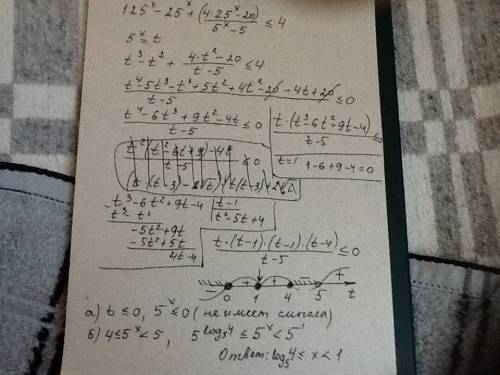 125ˣ - 25ˣ + (4·25ˣ-20)/(5ˣ-5) ≤ 4
5ˣ = t
t³ - t² + (4·t²-20)/(t-5) ≤ 4
(t⁴-5t³-t³+5t²+4t²-20-4t+20)/(t-5) ≤ 0
(t⁴-6t³+9t²-4t)/(t-5) ≤ 0
t·(t³-6t²+9t-4)/(t-5) ≤ 0
t=1 1-6+9-4=0
t³-6t²+9t-4 | t-1
t³-t² | t²-5t+4
-5t²+9t
-5t²+5t
4t-4
t·(t-1)·(t-1)·(t-4)/(t-5) ≤ 0
- + + - +
0 1 4 5 t
а) t ≤ 0, 5ˣ ≤ 0 (не имеет смысла)
б) 4 ≤ 5ˣ < 5, 5^(log₅4) ≤ 5ˣ < 5¹
Ответ: log₅4 ≤ x < 1